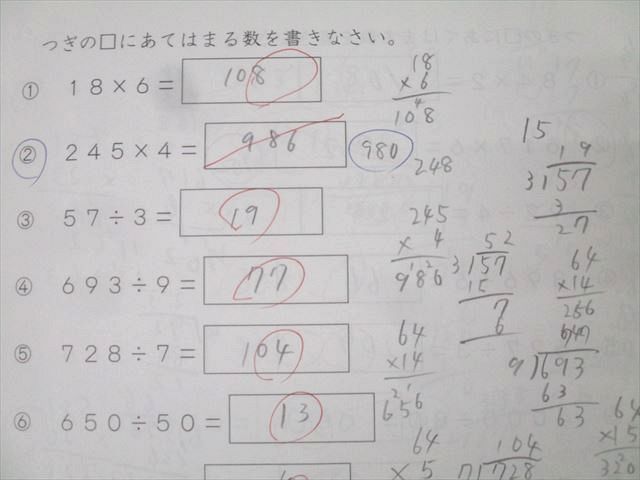 つぎの□にあてはまる数を書きなさい。
① 18×6= 108
② 245×4= 986 980
③ 57÷3= 19
④ 693÷9= 77
⑤ 728÷7= 104
⑥ 650÷50= 13
18
×6
108
248
245
× 4
986
15
19
3)57
3
27
52
3)157
15
7
6
64
×14
256
64
×14
656
9)693
63
63
64
× 5
104
7)728
64
×15
320